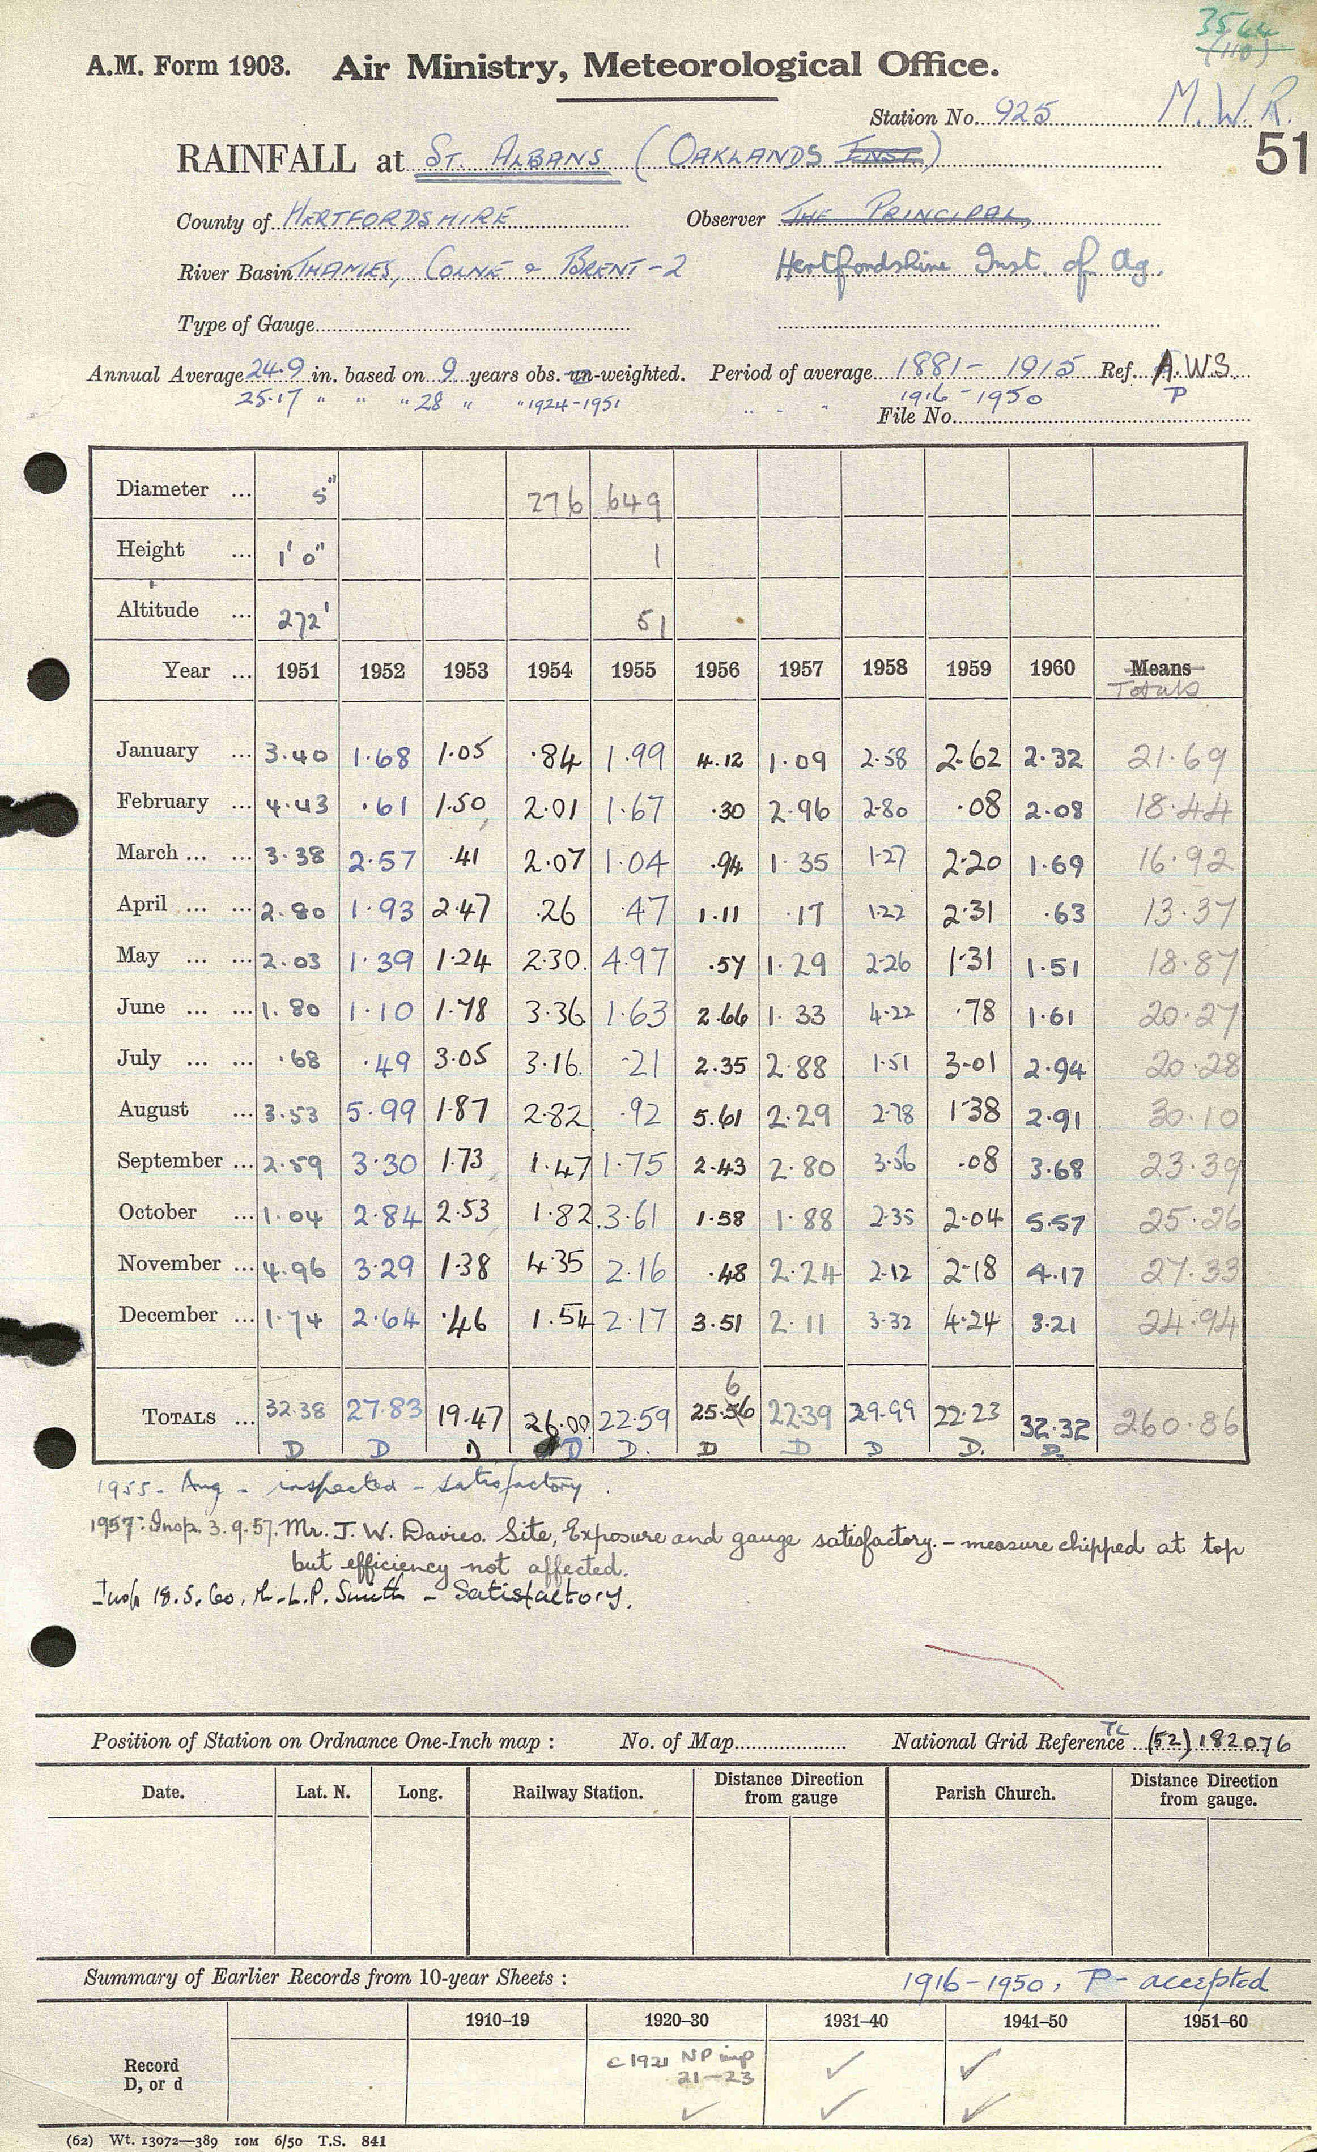 3564
(110)
A.M. Form 1903. Air Ministry, Meteorological Office.
Station No. 925 M.W.R.
51
RAINFALL at ST. ALBANS (OAKLANDS INST.)
County of HERTFORDSHIRE Observer THE PRINCIPAL,
River Basin THAMES, COLNE & BRENT-2 Hertfordshire Inst. of Ag.
Type of Gauge
Annual Average 24.9 in. based on 9 years obs. un-weighted. Period of average 1881-1915 Ref. A.W.S.
25.17 " " " 28 " " 1924-1951 " " " 1916-1950 P
File No.
Diameter ... 5" 276 649
Height ... 1' 0" 1
Altitude ... 272' 51
Year ... 1951 1952 1953 1954 1955 1956 1957 1958 1959 1960 Means
Totals
January ... 3.40 1.68 1.05 .84 1.99 4.12 1.09 2.58 2.62 2.32 21.69
February ... 4.43 .61 1.50 2.01 1.67 .30 2.96 2.80 .08 2.08 18.44
March ... ... 3.38 2.57 .41 2.07 1.04 .94 1.35 1.27 2.20 1.69 16.92
April ... ... 2.80 1.93 2.47 .26 .47 1.11 .17 1.22 2.31 .63 13.37
May ... ... 2.03 1.39 1.24 2.30 4.97 .57 1.29 2.26 1.31 1.51 18.87
June ... ... 1.80 1.10 1.78 3.36 1.63 2.66 1.33 4.22 .78 1.61 20.27
July ... ... .68 .49 3.05 3.16 .21 2.35 2.88 1.51 3.01 2.94 20.28
August ... 3.53 5.99 1.87 2.82 .92 5.61 2.29 2.78 1.38 2.91 30.10
September ... 2.59 3.30 1.73 1.47 1.75 2.43 2.80 3.56 .08 3.68 23.39
October ... 1.04 2.84 2.53 1.82 3.61 1.58 1.88 2.35 2.04 5.57 25.26
November ... 4.96 3.29 1.38 4.35 2.16 .48 2.24 2.12 2.18 4.17 27.33
December ... 1.74 2.64 .46 1.54 2.17 3.51 2.11 3.32 4.24 3.21 24.94
6
TOTALS ... 32.38 27.83 19.47 26.00 22.59 25.56 22.39 29.99 22.23 32.32 260.86
D D D D D. D D D D. D.
1955 - Aug - inspected - satisfactory.
1957: Insp. 3.9.57. Mr. J. W. Davies. Site, Exposure and gauge satisfactory. - measure chipped at top
but efficiency not affected.
Insp 18.5.60. Mr. L.P. Smith - Satisfactory.
Position of Station on Ordnance One-Inch map : No. of Map National Grid Reference TL (52) 182076
Date. Lat. N. Long. Railway Station. Distance Direction from gauge Parish Church. Distance Direction from gauge.
Summary of Earlier Records from 10-year Sheets : 1916-1950, P- accepted
1910–19 1920–30 1931–40 1941–50 1951–60
Record c1921 NP imp ✓ ✓
D, or d 21-23
✓ ✓ ✓
(62) Wt. 13072—389 10M 6/50 T.S. 841